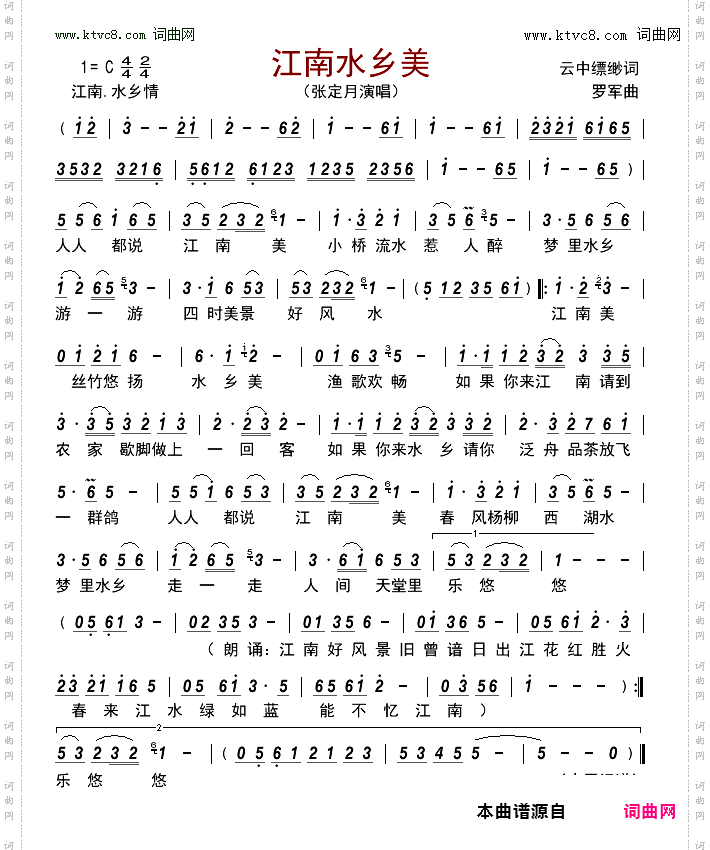 www.ktvc8.com 词曲网 www.ktvc8.com 词曲网
1= C 4/4 2/4 江南水乡美 云中缥缈词
江南.水乡情 （张定月演唱） 罗军曲
( 1 2 | 3 - - 2 1 | 2 - - 6 2 | 1 - - 6 1 | 1 - - 6 1 | 2 3 2 1 6 1 6 5 |
3 5 3 2 3 2 1 6 | 5 6 1 2 6 1 2 3 1 2 3 5 2 3 5 6 | 1 - - 6 5 | 1 - - 6 5 )
5 5 6 1 6 5 | 3 5 2 3 2 6 1 - | 1 · 3 2 1 | 3 5 6 3 5 - | 3 · 5 6 5 6
人人 都说 江 南 美 小 桥 流水 惹 人 醉 梦 里水乡
1 2 6 5 5 3 - | 3 · 1 6 5 3 | 5 3 2 3 2 6 1 - | ( 5 1 2 3 5 6 1 ) |: 1 · 2 2 3 -
游 一 游 四 时美景 好 风 水 江 南 美
0 1 2 1 6 - | 6 · 1 1 2 - | 0 1 6 3 3 5 - | 1 · 1 1 2 3 2 3 3 5 |
丝竹悠 扬 水 乡 美 渔 歌欢 畅 如 果 你来江 南 请到
3 · 3 5 3 2 1 3 | 2 · 2 3 2 - | 1 · 1 1 2 3 2 3 3 2 | 2 · 3 2 7 6 1 |
农 家 歇脚做上 一 回 客 如 果 你来水 乡 请你 泛 舟 品茶放飞
5 · 6 5 - | 5 5 1 6 5 3 | 3 5 2 3 2 6 1 - | 1 · 3 2 1 | 3 5 6 5 -
一 群鸽 人人 都说 江 南 美 春 风杨柳 西 湖水
1
3 · 5 6 5 6 | 1 2 6 5 5 3 - | 3 · 6 1 6 5 3 | 5 3 2 3 2 | 1 - - -
梦 里水乡 走 一 走 人 间 天堂里 乐 悠 悠
( 0 5 6 1 3 - | 0 2 3 5 3 - | 0 1 3 5 6 - | 0 1 3 6 5 - | 0 5 6 1 2 · 3
（ 朗 诵：江 南 好 风 景 旧 曾 谙 日 出 江 花 红 胜 火
2 3 2 1 1 6 5 | 0 5 6 1 3 · 5 | 6 5 6 1 2 - | 0 3 5 6 | 1 - - ) :|
春 来 江 水 绿 如 蓝 能 不 忆 江 南 ）
2
5 3 2 3 2 6 1 - | ( 0 5 6 1 2 1 2 3 | 5 3 4 5 5 - | 5 - - 0 )
乐 悠 悠
本曲谱源自 词曲网
词曲网